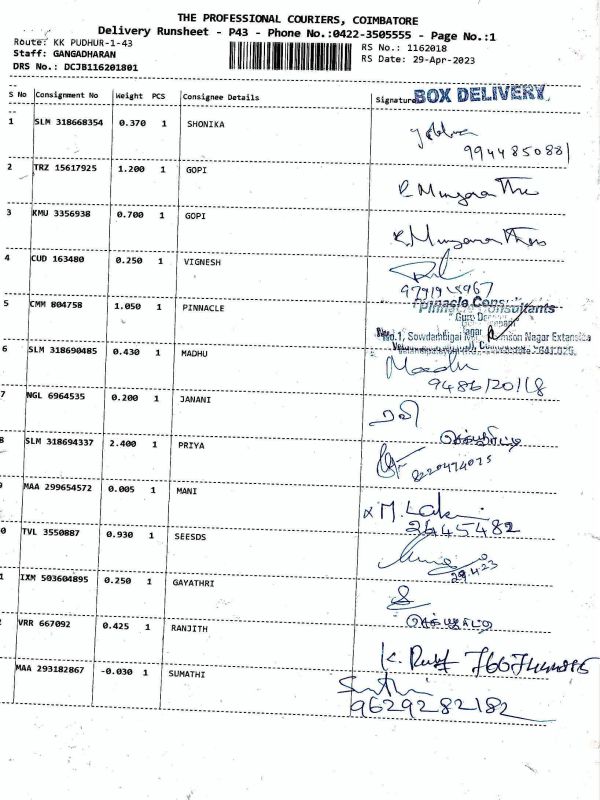 THE PROFESSIONAL COURIERS, COIMBATORE
Delivery Runsheet - P43 - Phone No.:0422-3505555 - Page No.:1
Route: KK PUDHUR-1-43
RS No.: 1162018
Staff: GANGADHARAN
RS Date: 29-Apr-2023
DRS No.: DCJB116201801
S No Consignment No Weight PCS Consignee Details Signature BOX DELIVERY
1 SLM 318668354 0.370 1 SHONIKA
9944850881
2 TRZ 15617925 1.200 1 GOPI
3 KMU 3356938 0.700 1 GOPI
4 CUD 163480 0.250 1 VIGNESH
5 CMM 804758 1.050 1 PINNACLE
Pinnacle Consultants
No.1, Sowdambigai
Nagar Extension
6 SLM 318690485 0.430 1 MADHU
Madhu
9486120118
7 NGL 6964535 0.200 1 JANANI
ரவி
8 SLM 318694337 2.400 1 PRIYA
8220474075
9 MAA 299654572 0.005 1 MANI
x M. Laksmi
2445482
0 TVL 3550887 0.930 1 SEESDS
29.4.23
1 IXM 503604895 0.250 1 GAYATHRI
2 VRR 667092 0.425 1 RANJITH
MAA 293182867 -0.030 1 SUMATHI
9629282182